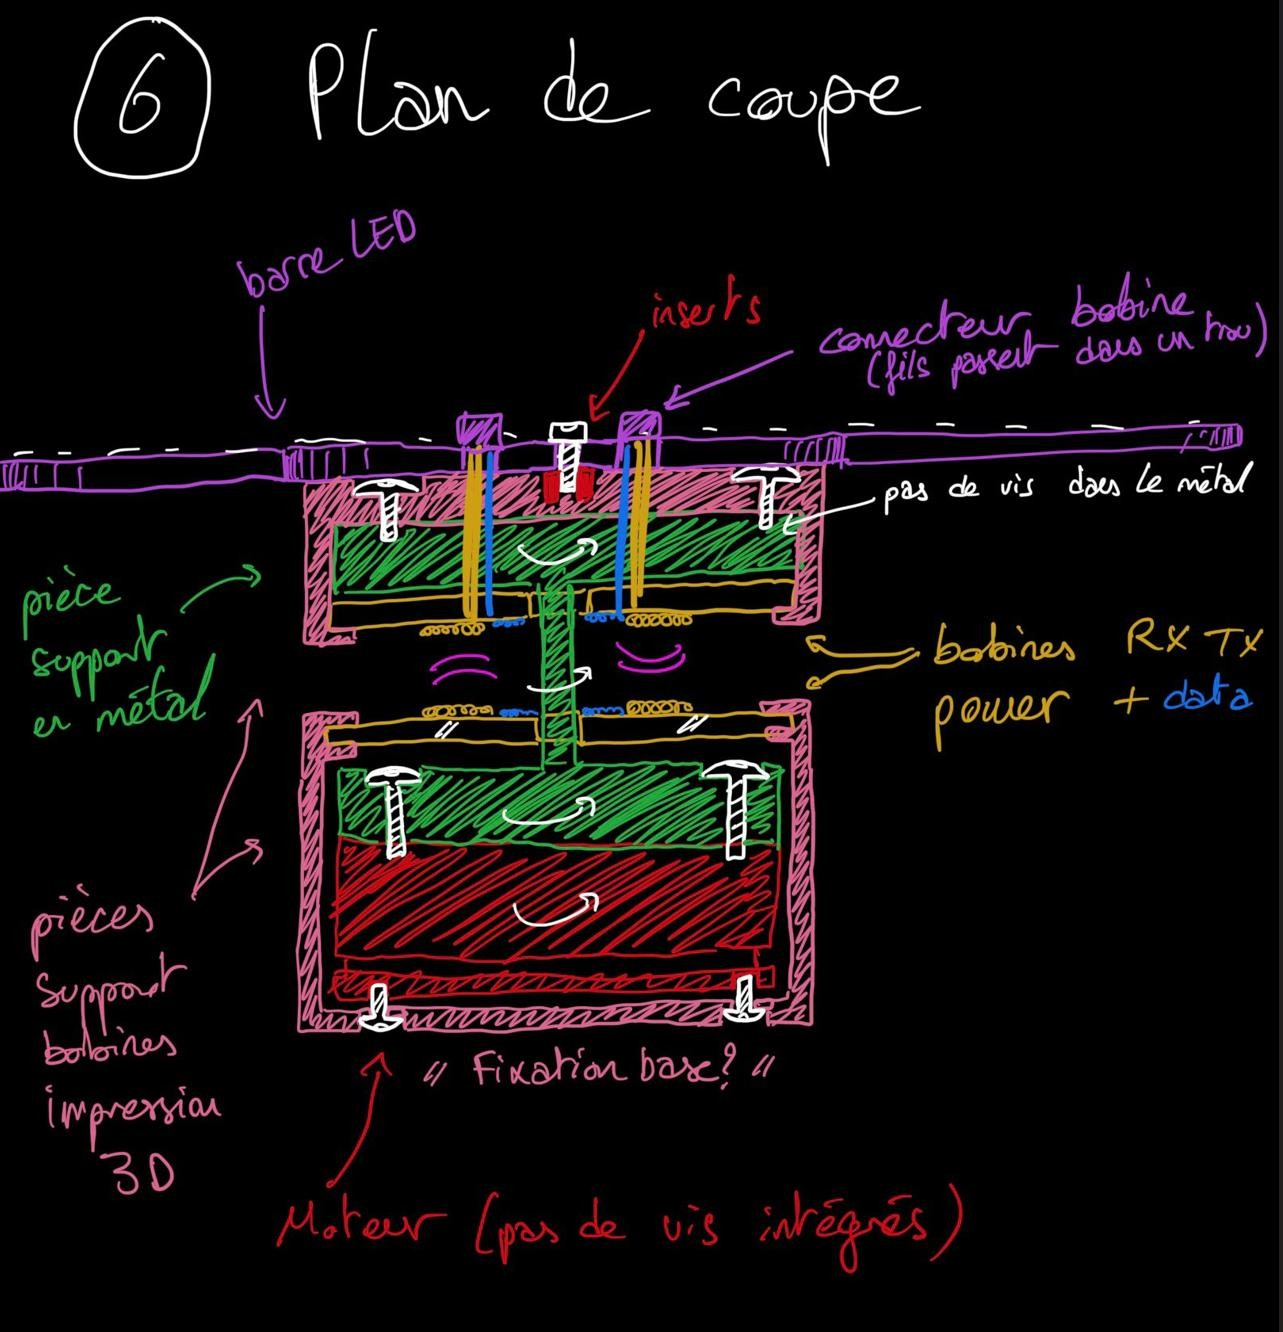 6 Plan de coupe
barre LED
inserts
connecteur bobine
(fils passent dans un trou)
pas de vis dans le métal
pièce
support
en métal
bobines RX TX
power + data
pièces
support
bobines
impression
3D
" Fixation base? "
Moteur (pas de vis intégrés)